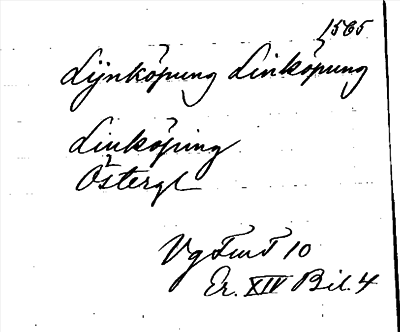 1565
Lijnköpung Linköpung
Linköping
Östergl
Vg Tur T 10
Er. XIV Bil. 4